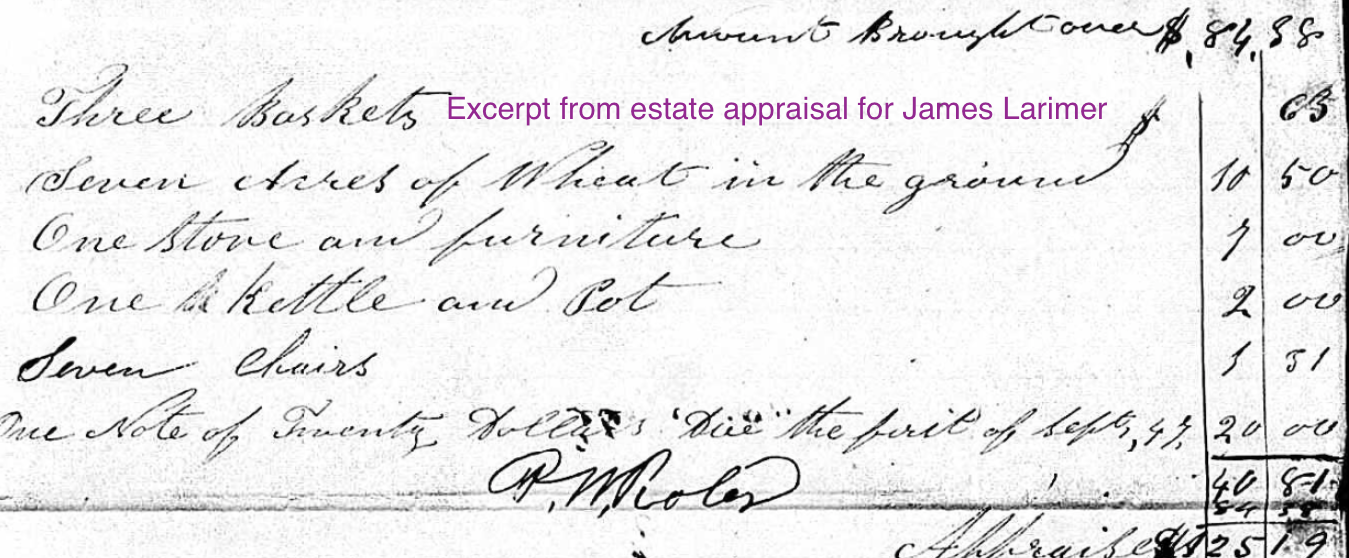 Amount Brought over $ 84.38
Three Baskets $ 63
Excerpt from estate appraisal for James Larimer
Seven Acres of Wheat in the ground 10 50
One Stove and furniture 7 00
One Kettle and Pot 2 00
Seven Chairs 1 31
One Note of Twenty Dollars Due the first of Sept, 47, 20 00
40 81
84 38
$125 19